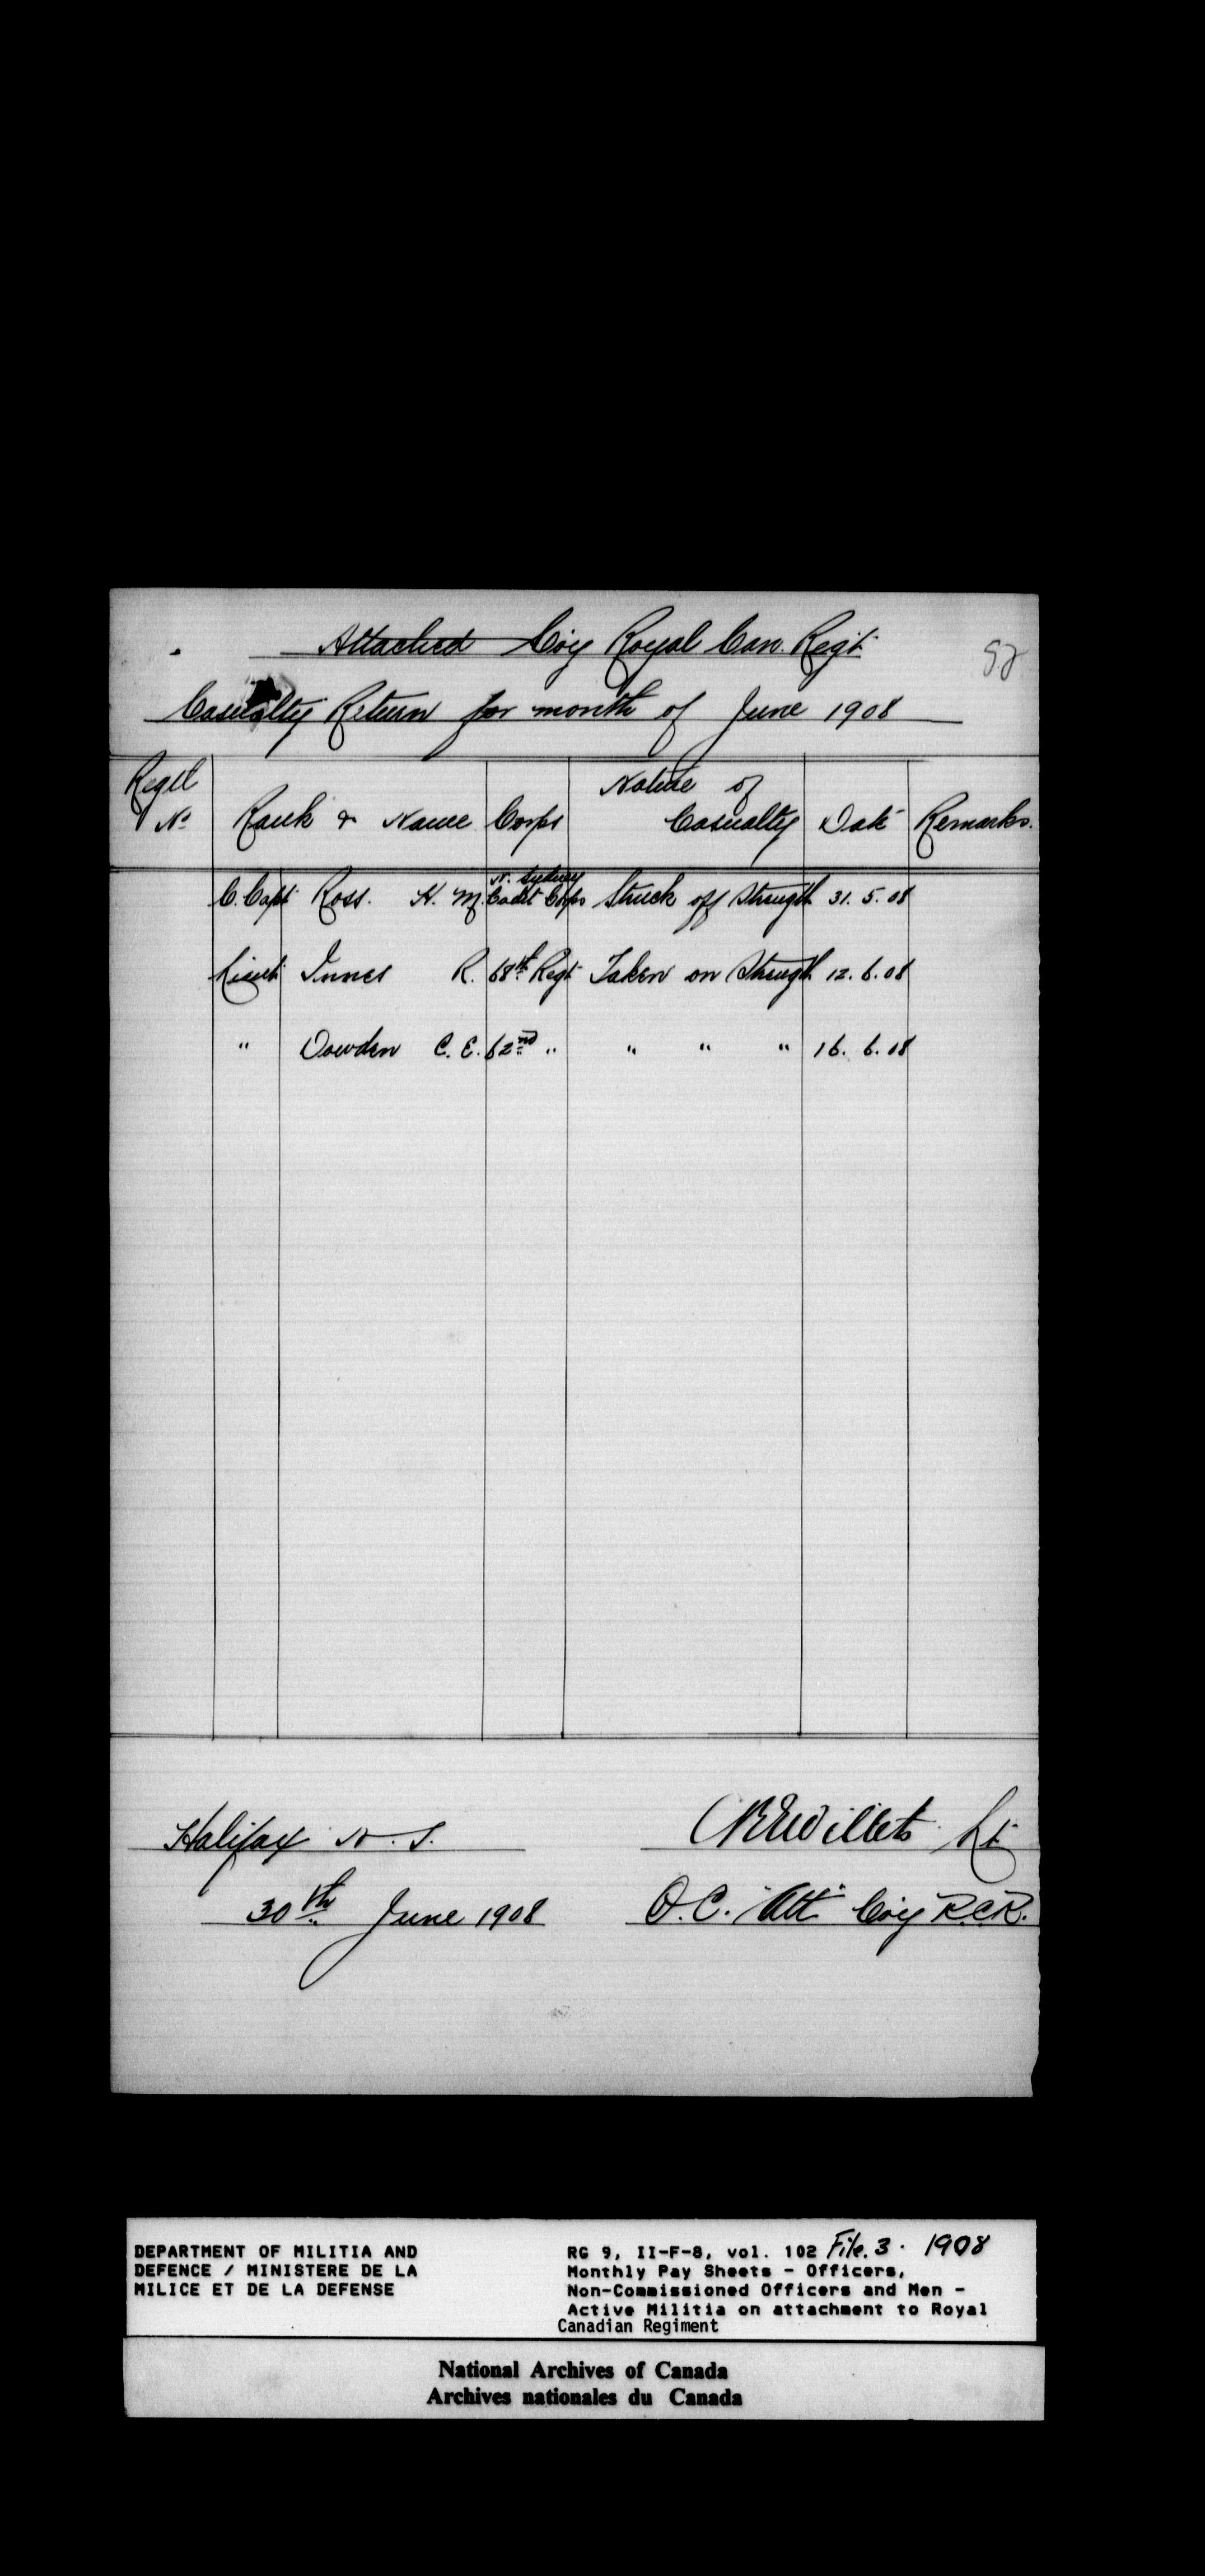 Attached Coy Royal Can. Regt.
Casualty Return for month of June 1908
Regtl No Rank & Name Corps Nature of Casualty Date Remarks.
C. Capt. Ross. H. M. N. Sydney Cadet Corps Struck off Strength 31. 5. 08
Lieut. Innes R. 68th Regt. Taken on Strength 12. 6. 08
" Dowden C. E. 62nd " " " " 16. 6. 08
Halifax N. S. Willets Lt.
30th June 1908 O.C. "Att" Coy R.C.R.
DEPARTMENT OF MILITIA AND
DEFENCE / MINISTERE DE LA
MILICE ET DE LA DEFENSE
RG 9, II-F-8, vol. 102 File. 3. 1908
Monthly Pay Sheets - Officers,
Non-Commissioned Officers and Men -
Active Militia on attachment to Royal
Canadian Regiment
National Archives of Canada
Archives nationales du Canada